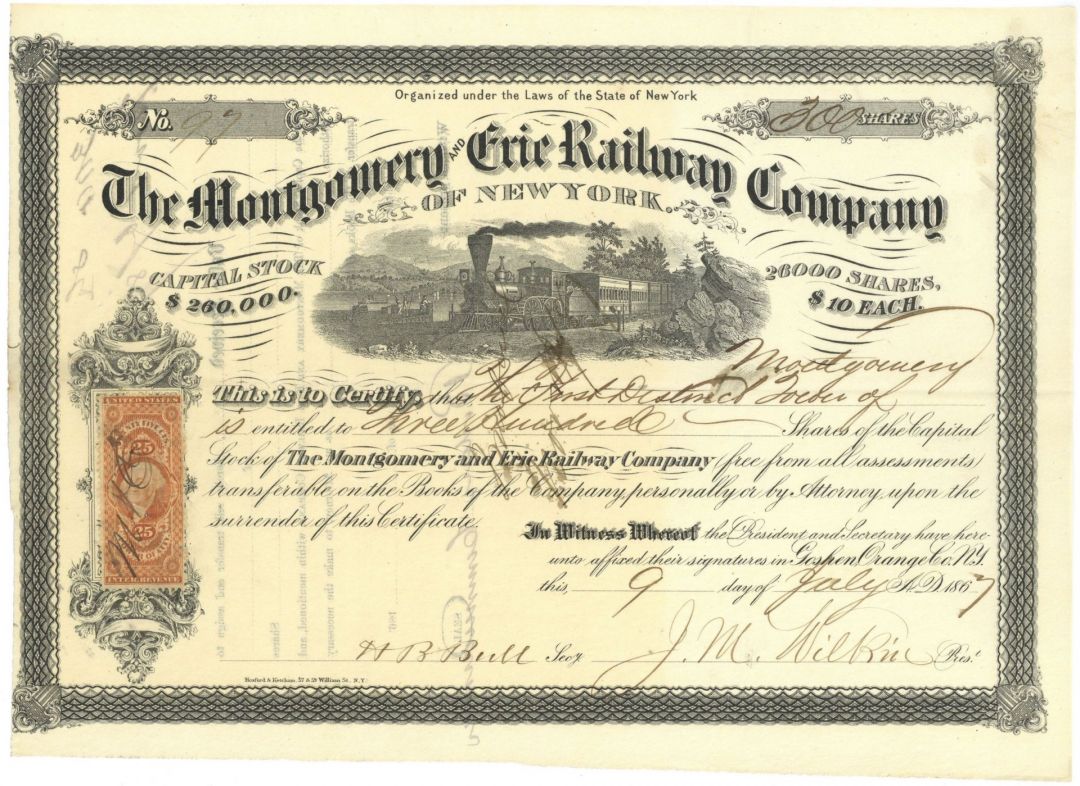 Organized under the Laws of the State of New York
No. 97
300 SHARES
The Montgomery AND Erie Railway Company
OF NEW YORK.
CAPITAL STOCK
$260,000.
26000 SHARES,
$10 EACH.
Montgomery
This is to Certify, that the First District Town of
is entitled to Three Hundred Shares of the Capital
Stock of The Montgomery and Erie Railway Company (free from all assessments)
transferable on the Books of the Company, personally or by Attorney, upon the
surrender of this Certificate.
In Witness Whereof the President and Secretary have here
unto affixed their signatures in Goshen, Orange Co. N.Y.
this, 9 day of July A.D. 1867
H B Bull Secy. J. M. Wilkin Pres.t
Hosford & Ketcham, 57 & 59 William St. N.Y.
UNITED STATES
25
25
INTER. REVENUE